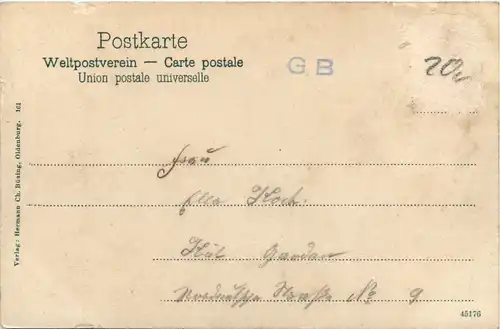 Postkarte
Weltpostverein — Carte postale
Union postale universelle
GB
20,-
Frau
Ella Koch
Kiel Gaarden
Norddeutsche Straße No 9
Verlag: Hermann Ch. Büsing, Oldenburg. 161
45176